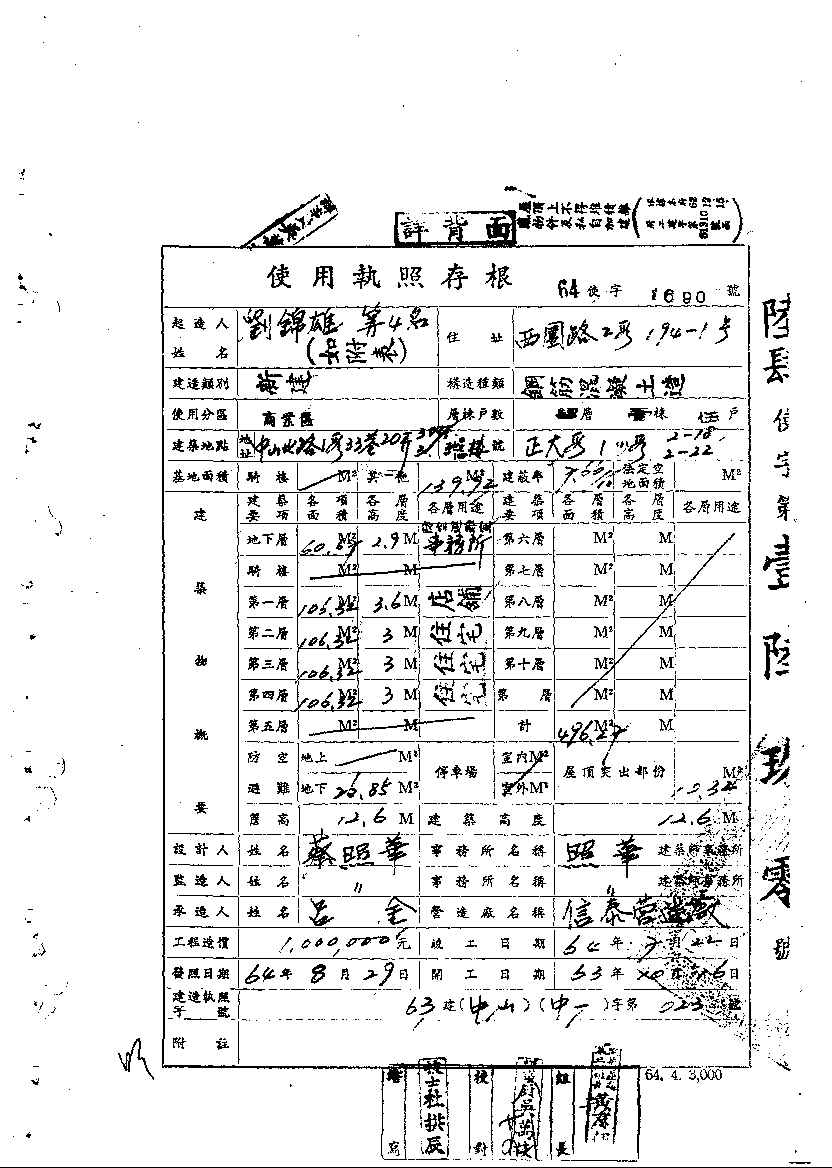 詳背面
屋頂上不得堆積雜
物件及私自加建
使用執照存根
64使字 1690 號
起造人姓名 劉錦雄 等4名 (如附表) 住址 西園路2段194-1号
建造類別 新建 構造種類 鋼筋混凝土造
使用分區 商業區 層棟戶數 層 棟 伍戶
建築地點 地址 中山北路1段33巷20弄 地號 正大段1小段 2-18, 2-22
基地面積 騎樓 M² 其他 139.92 M² 建蔽率 法定空地面積 M²
建築物概要
建築要項 各項面積 各層高度 各層用途 建築要項 各層面積 各層高度 各層用途
地下層 60.89 M² 2.9 M 事務所 第六層 M² M
騎樓 M² M 第七層 M² M
第一層 106.32 M² 3.6 M 店舖 第八層 M² M
第二層 106.32 M² 3 M 住宅 第九層 M² M
第三層 106.32 M² 3 M 住宅 第十層 M² M
第四層 106.32 M² 3 M 住宅 第 層 M² M
第五層 M² M 計 496.27 M² M
防空避難 地上 M² 停車場 室內M² 屋頂突出部份 M²
地下 20.85 M² 室外M² 10.34
簷高 12.6 M 建築高度 12.6 M
設計人 姓名 蔡照華 事務所名稱 照華 建築師事務所
監造人 姓名 〃 事務所名稱 建築師事務所
承造人 姓名 呂全 營造廠名稱 信泰營造廠
工程造價 1,000,000元 竣工日期 64年7月22日
發照日期 64年8月29日 開工日期 63年 月 6日
建造執照字號 63建(中山)(中一)字第 023 號
附註
64. 4. 3,000
繕寫 技士杜拱辰 校對 組長
陸肆使字第壹陸玖零號